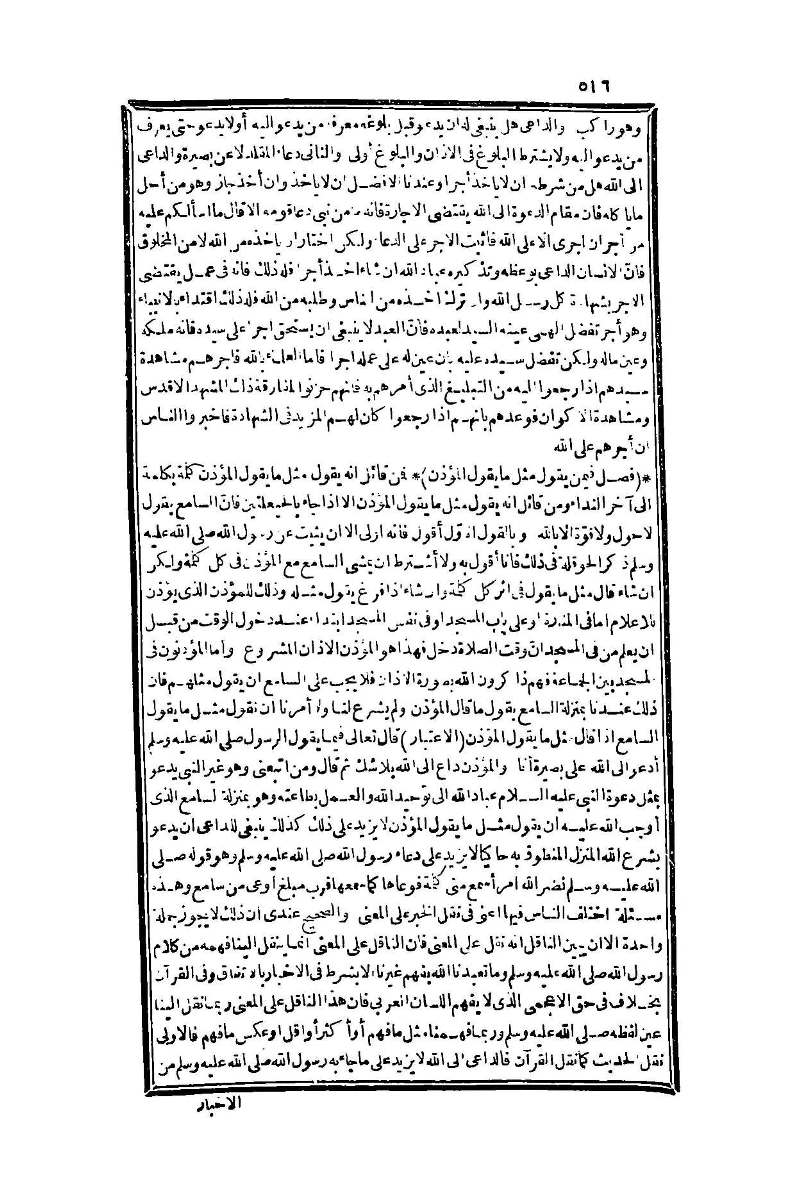 ٥١٦
وهو راكب والداعى هل ينبغى له ان يدعو قبل بلوغه معرفة من يدعو اليه أولا يدعو حتى يعرف
من يدعو اليه ولا يشترط البلوغ فى الاذان والبلوغ أولى والثانى دعاء المقلد لا عن بصيرة والداعى
الى الله هل من شرطه ان لا ياخذ أجرا وعندنا الافضل ان لا ياخذ وان أخذ جاز وهو من أحل
ما يا كله فان مقام الدعوة الى الله يقتضى الاجارة فانه من نبى دعا قومه الا قال ما اسألكم عليه
من أجر ان اجرى الا على الله فاثبت الاجر على الدعاء ولكن اختار ان ياخذه من الله لا من المخلوق
فان الانسان الداعى بوعظه وتذكيره عباد الله ان شاء اخذ أجرا فله ذلك فانه فى عمل يقتضى
الاجر بشهادة كل رسل الله وان ترك اخذه من الناس وطلبه من الله فله ذلك اقتداء بالانبياء
وهو أجر تفضل الهى عينه السيد لعبده فان العبد لا ينبغى ان يستحق اجرا على سيده فانه ملكه
وعين ماله ولكن تفضل سيده عليه بان عين له على عمله اجرا فاما العلماء بالله فاجرهم مشاهدة
سيدهم اذا رجعوا اليه من التبليغ الذى أمرهم به فانهم حزنوا لمفارقة ذاك المشهد الاقدس
ومشاهدة الاكوان فوعدهم بانهم اذا رجعوا كان لهم المزيد فى الشهادة فاخبروا الناس
ان أجرهم على الله
*(فصل فيمن يقول مثل ما يقول المؤذن)* فمن قائل انه يقول مثل ما يقول المؤذن كلمة بكلمة
الى آخر النداء ومن قائل انه يقول مثل ما يقول المؤذن الا اذا جاء بالحيعلتين فان السامع يقول
لا حول ولا قوة الا بالله وبالقول الاول أقول فانه اولى الا ان يثبت عن رسول الله صلى الله عليه
وسلم ذكر الحوقلة فى ذلك فانا أقول به ولا أشترط ان يمشى السامع مع المؤذن فى كل كلمة ولكن
ان شاء قال مثل ما يقول فى اثر كل كلمة وان شاء اذا فرغ يقول مثله وذلك للمؤذن الذى يؤذن
للاعلام اما فى المنارة او على باب المسجد او فى نفس المسجد ابتداء عند دخول الوقت من قبل
ان يعلم من فى المسجد ان وقت الصلاة دخل فهذا هو المؤذن الاذان المشروع وأما المؤذنون فى
المسجد بين الجماعة فهم ذاكرون الله بصورة الاذان فلا يجب على السامع ان يقول مثلهم فان
ذلك عندنا بمنزلة السامع يقول ما قال المؤذن ولم يشرع لنا ولا أمرنا ان نقول مثل ما يقول
السامع اذا قال مثل ما يقول المؤذن (الاعتبار) قال تعالى فيما يقول الرسول صلى الله عليه وسلم
أدعو الى الله على بصيرة أنا والمؤذن داع الى الله بلا شك ثم قال ومن اتبعنى وهو غير النبى يدعو
بمثل دعوة النبى عليه السلام عباد الله الى توحيد الله والعمل بطاعته وهو بمنزلة السامع الذى
أوجب الله عليه ان يقول مثل ما يقول المؤذن لا يزيد على ذلك كذلك ينبغى للداعى ان يدعو
بشرع الله المنزل المنطوق به حاكيا لا يزيد على دعاء رسول الله صلى الله عليه وسلم وهو قوله صلى
الله عليه وسلم نضر الله امرأ سمع منى كلمة فوعاها كما سمعها فرب مبلغ أوعى من سامع وهذه
مسئلة اختلف الناس فيها اعنى فى نقل الخبر على المعنى والصحيح عندى ان ذلك لا يجوز جملة
واحدة الا ان يبين الناقل انه نقل على المعنى فان الناقل على المعنى انما ينقل الينا فهمه من كلام
رسول الله صلى الله عليه وسلم وما تعبدنا الله بفهم غيرنا الا بشرط فى الاخبار بالاتفاق وفى القرآن
بخلاف فى حق الاعجمى الذى لا يفهم اللسان العربى فان هذا الناقل على المعنى ربما نقل الينا
عين لفظه صلى الله عليه وسلم وربما فهمنا مثل ما فهم أو أكثر أو اقل او عكس ما فهم فالاولى
نقل الحديث كما نقل القرآن فالداعى الى الله لا يزيد على ما جاء به رسول الله صلى الله عليه وسلم من
الاخبار